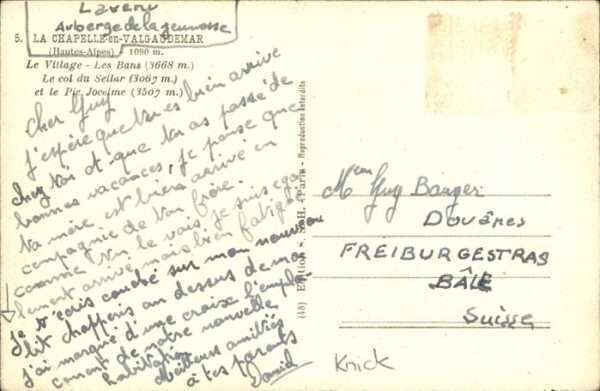 Laveru
Auberge de la jeunesse
5. LA CHAPELLE-en-VALGAUDEMAR
(Hautes-Alpes) 1090 m.
Le Village - Les Bans (3668 m.)
Le col du Sellar (3067 m.)
et le Pic Jocelme (3507 m.)
Cher Guy
j'espère que tu es bien arrivé
chez toi et que tu as passé de
bonnes vacances, je pense que
ta mère est bien arrivé en
compagnie de ton frère.
comme tu le vois je suis éga-
lement arrivé mais bien fatigué
Je t'écris couché sur mon nouveau
lit chofferis au dessus de moi
j'ai marqué d'une croix l'empla-
cement de notre nouvelle
habitation
Meilleurs amitiés
à tes parents
David
(48) Edition S. H. - Paris - Reproduction interdite
Guy Banger
Douânes
FREIBURGESTRAS
BÂLE
Suisse
Knick